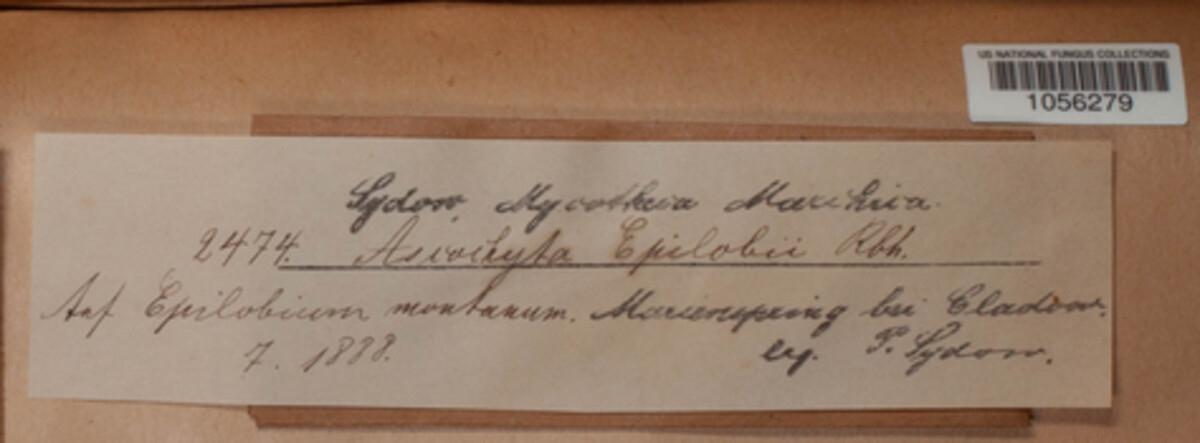 US NATIONAL FUNGUS COLLECTIONS
1056279
Sydow, Mycotheca Marchica.
2474. Ascochyta Epilobii Rbh.
Auf Epilobium montanum. Marienspring bei Cladow.
7. 1888. leg. P. Sydow.